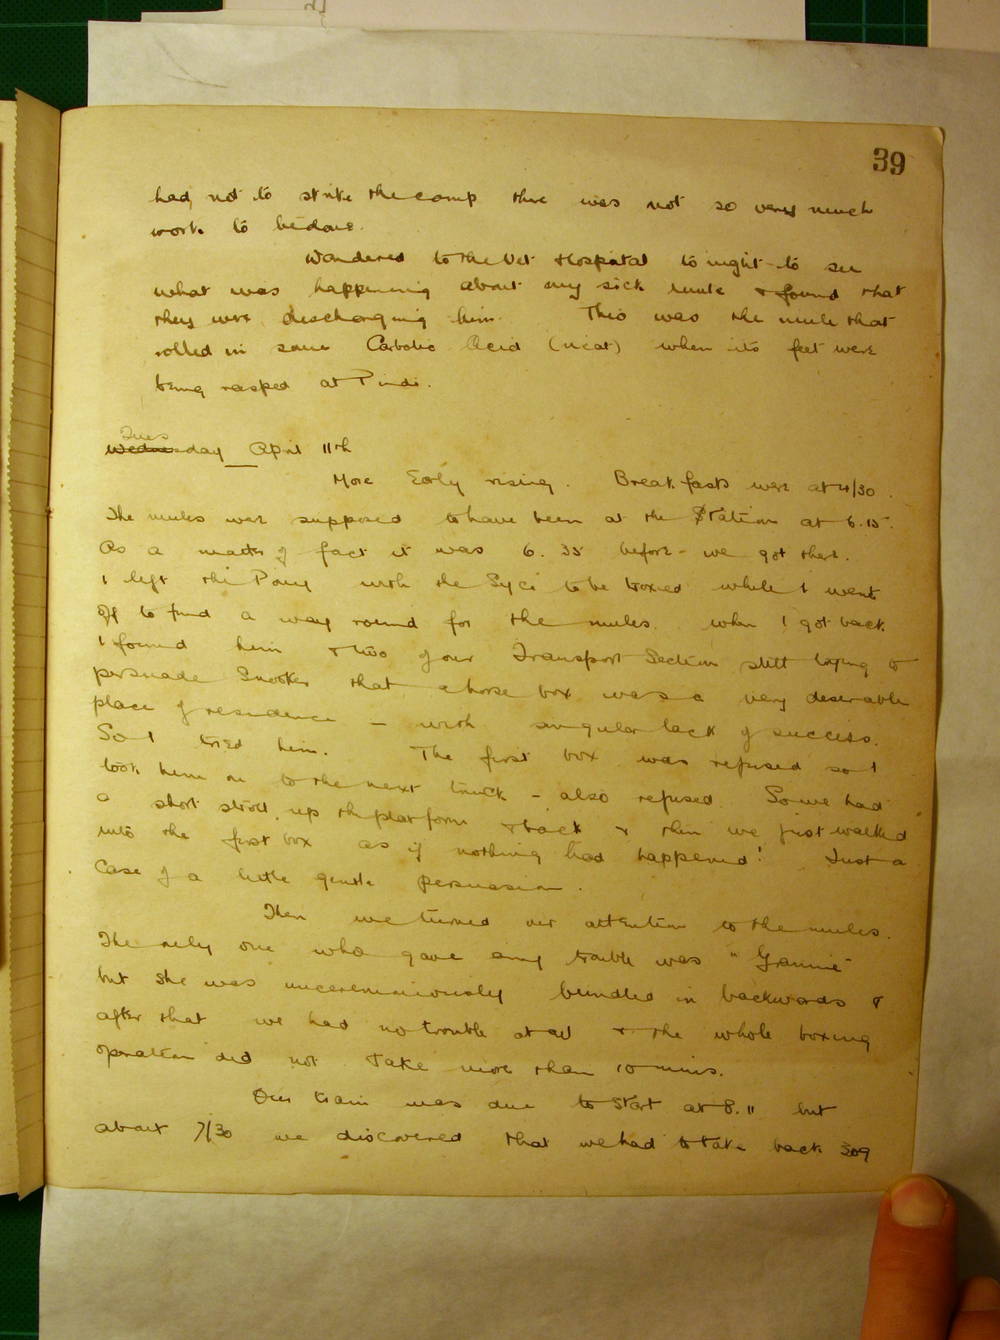 39
had not to strike the camp there was not so very much
work to be done.
Wandered to the Vet Hospital to night to see
what was happening about my sick mule & found that
they were discharging him. This was the mule that
rolled in some Carbolic Acid (neat) when its feet were
being rasped at Pindi.
Tues
Wednesday April 11th
More Early rising. Breakfasts were at 4/30.
The mules were supposed to have been at the Station at 6.15.
As a matter of fact it was 6.35 before we got there.
I left the Pony with the Syce to be boxed while I went
off to find a way round for the mules. When I got back
I found him & two of our Transport Section still trying to
persuade Snooker that a horse box was a very desirable
place of residence – with singular lack of success.
So I tried him. The first box was refused so I
took him on to the next truck – also refused. So we had
a short stroll up the platform & back & then we just walked
into the first box as if nothing had happened! Just a
case of a little gentle persuasion.
Then we turned our attention to the mules.
The only one who gave any trouble was "Grannie"
but she was unceremoniously bundled in backwards &
after that we had no trouble at all & the whole boxing
operation did not take more than 10 mins.
Our train was due to start at 8.11 but
about 7/30 we discovered that we had to take back 309